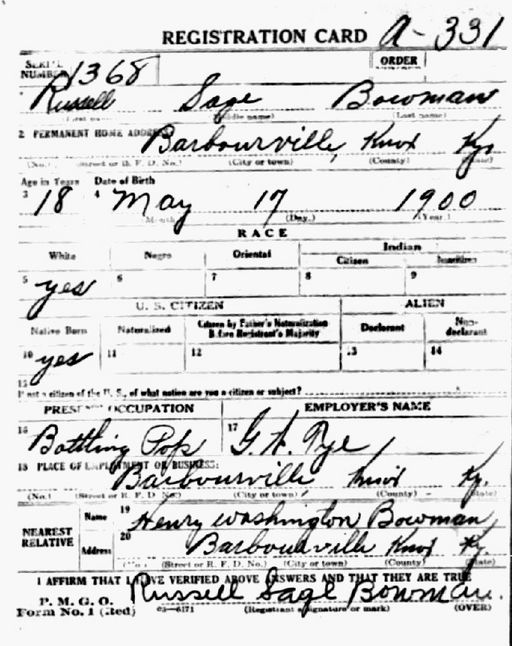 REGISTRATION CARD A-331
SERIAL NUMBER 1368 ORDER
1 Russell Sage Bowman
(Middle name) (Last name)
2 PERMANENT HOME ADDRESS Barbourville, Knox Ky.
(No.) (Street or R. F. D. No.) (City or town) (County) (State)
Age in Years Date of Birth
3 18 4 May 17 1900
(Month) (Day.) (Year.)
RACE
White Negro Oriental Indian
Citizen
5 yes 6 7 8 9
U. S. CITIZEN ALIEN
Native Born Naturalized Citizen by Father's Naturalization Before Registrant's Majority Declarant Non-declarant
10 yes 11 12 13 14
15
If not a citizen of the U. S., of what nation are you a citizen or subject?
PRESENT OCCUPATION EMPLOYER'S NAME
16 Bottling Pop 17 G. A. Pye
18 PLACE OF EMPLOYMENT OR BUSINESS:
Barbourville Knox Ky.
(No.) (Street or R. F. D. No.) (City or town) (County) (State)
NEAREST RELATIVE Name 19 Henry Washington Bowman
Address 20 Barbourville Knox Ky
(No.) (Street or R. F. D. No.) (City or town) (County) (State)
I AFFIRM THAT I HAVE VERIFIED ABOVE ANSWERS AND THAT THEY ARE TRUE
P. M. G. O. Russell Sage Bowman.
Form No. 1 (Red) 03-6171 (Registrant's signature or mark) (OVER)